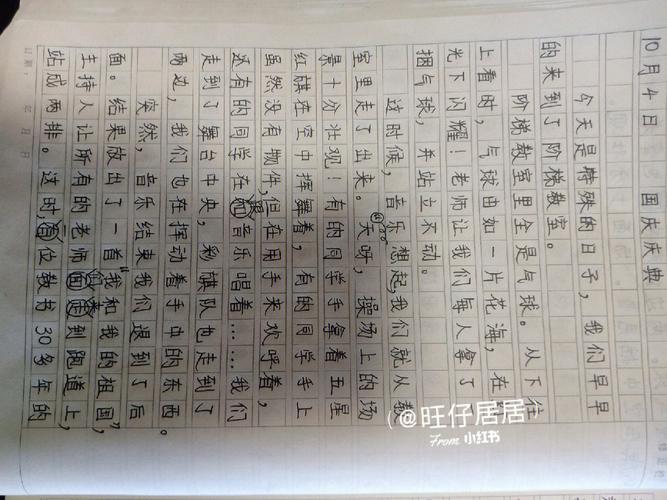 10月4日 国庆庆典
今天是特殊的日子，我们早早
的来到了阶梯教室。
阶梯教室里全是气球。从下往
上看时，气球由如一片花海，在阳
光下闪耀！老师让我们每人拿了一
捆气球，并站立不动。
这时候，音乐想起，我们就从教
室里走了出来。天呀，操场上的场
景十分壮观！有的同学手拿着五星
红旗在空中挥舞着，有的同学手上
虽然没有物件，但在用手来欢呼着，
还有的同学在跟音乐唱着……我们
走到了舞台中央，彩旗队也走到了
两边，我们也在挥动着手中的东西。
突然，音乐结束我们退到了后
面。结果放出了一首“我和我的祖国”，
主持人让所有的老师走到跑道上，
站成两排。这时，有位教书30多年的
日期： 年 月 日
@旺仔居居
From 小红书